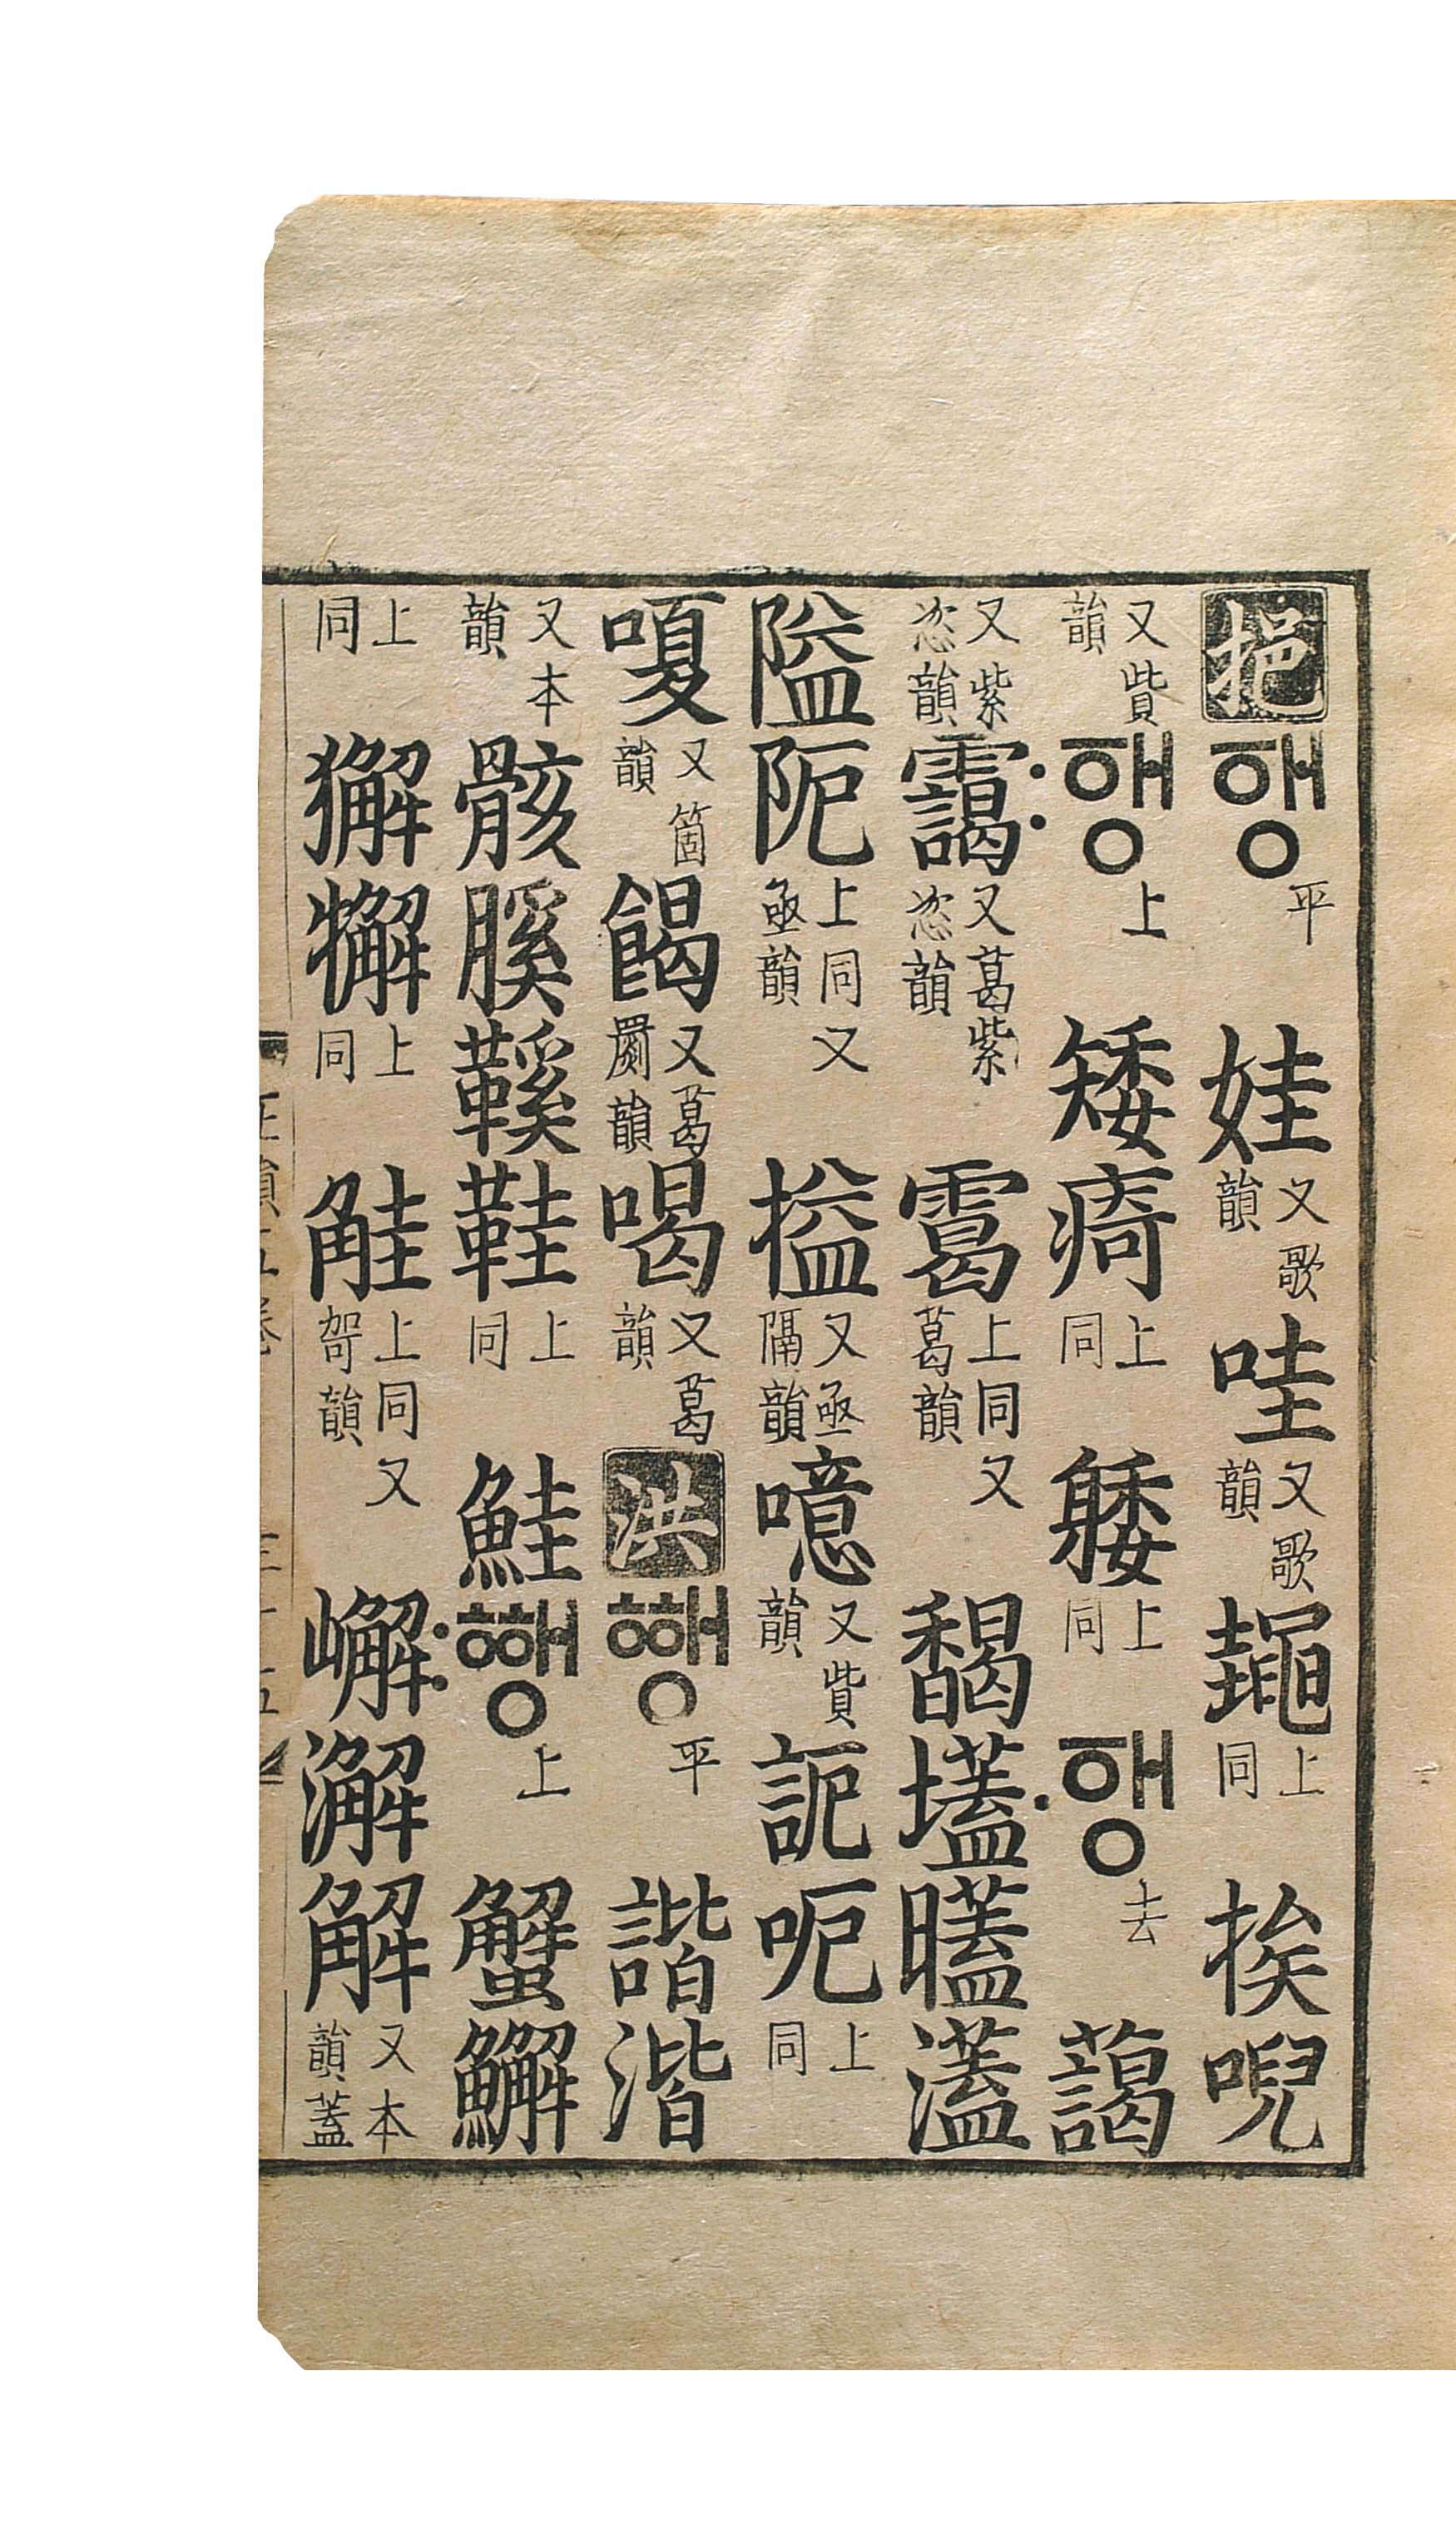 挹 ᅙᅢᆼ 平 娃 又歌韻 哇 又歌韻 鼃 上同 挨 唲
又貲韻 〯ᅙᅢᆼ 上 矮 㾨 上同 躷 上同 〮ᅙᅢᆼ 去 藹
又紫恣韻 靄 又葛紫恣韻 䨠 上同又葛韻 馤 壒 濭
隘 阨 上同又亟韻 搤 又亟隔韻 噫 又貲韻 呃 上同
嗄 又箇韻 餲 又葛罽韻 喝 又葛韻 洪 ᅘᅢᆼ 平 諧 湝
又本韻 骸 膎 鞵 鞋 上同 鮭 〯ᅘᅢᆼ 上 蟹 䲒
上同 獬 上同 觟 上同又哿韻 嶰 澥 解 又本韻蓋